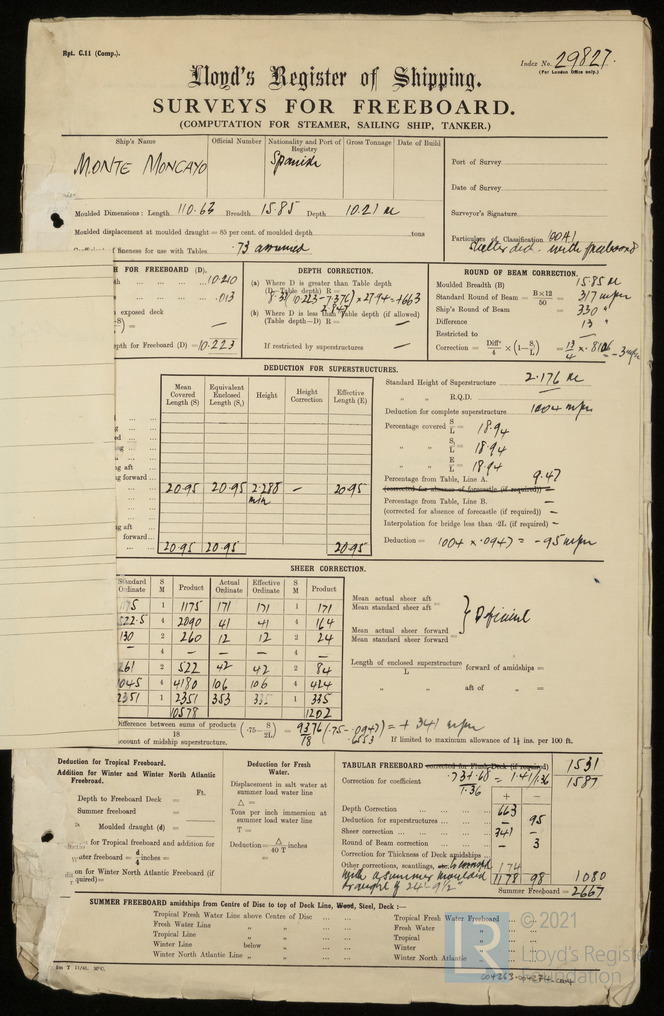 Rpt. C.11 (Comp.).
Index No. 29827.
(For London Office only.)
Lloyd's Register of Shipping.
SURVEYS FOR FREEBOARD.
(COMPUTATION FOR STEAMER, SAILING SHIP, TANKER.)
Ship's Name Official Number Nationality and Port of Registry Gross Tonnage Date of Build
MONTE MONCAYO Spanish
Port of Survey
Date of Survey
Surveyor's Signature
Particulars of Classification 100A1
Shelter dec. with freeboard
Moulded Dimensions: Length 110.63 Breadth 15.85 Depth 10.21 m
Moulded displacement at moulded draught = 85 per cent. of moulded depth tons
Coefficient of fineness for use with Tables .73 assumed
H FOR FREEBOARD (D).
10.210
.013
exposed deck
Depth for Freeboard (D) = 10.223
DEPTH CORRECTION.
(a) Where D is greater than Table depth
(D—Table depth) R =
8.32(10.223-7.376) × 27.94 = +663
2.847
(b) Where D is less than Table depth (if allowed)
(Table depth—D) R = —
If restricted by superstructures —
ROUND OF BEAM CORRECTION.
Moulded Breadth (B) 15.85 m
Standard Round of Beam = B×12/50 = 317 m/m
Ship's Round of Beam = 330 "
Difference 13 "
Restricted to —
Correction = Diff.ce/4 × (1−S₁/L) = 13/4 × .8106 = -3 m/m
DEDUCTION FOR SUPERSTRUCTURES.
Mean Covered Length (S) Equivalent Enclosed Length (S₁) Height Height Correction Effective Length (E)
20.95 20.95 2.288 m/m — 20.95
20.95 20.95 20.95
Standard Height of Superstructure 2.176 m
" " R.Q.D.
Deduction for complete superstructure 1004 m/m
Percentage covered S/L = 18.94
" " S₁/L = 18.94
" " E/L = 18.94
Percentage from Table, Line A. 9.47
(corrected for absence of forecastle (if required)) =
Percentage from Table, Line B. —
(corrected for absence of forecastle (if required)) —
Interpolation for bridge less than ·2L (if required) —
Deduction = 1004 × .0947 = -95 m/m
SHEER CORRECTION.
Standard Ordinate S M Product Actual Ordinate Effective Ordinate S M Product
1175 1 1175 171 171 1 171
522.5 4 2090 41 41 4 164
130 2 260 12 12 2 24
— 4 — — — 4 —
261 2 522 42 42 2 84
1045 4 4180 106 106 4 424
2351 1 2351 353 335 1 335
10578 1202
Mean actual sheer aft
Mean standard sheer aft =
Mean actual sheer forward
Mean standard sheer forward =
} Deficient
Length of enclosed superstructure/L forward of amidships =
" " aft of " =
Difference between sums of products/18 (·75−S/2L) = 9376/18 (.75-.0947) = + 341 m/m
.6553
account of midship superstructure. If limited to maximum allowance of 1½ ins. per 100 ft.
Deduction for Tropical Freeboard.
Addition for Winter and Winter North Atlantic Freeboard.
Ft.
Depth to Freeboard Deck =
Summer freeboard =
Moulded draught (d) =
for Tropical freeboard and addition for
Winter freeboard = d/4 inches =
on for Winter North Atlantic Freeboard (if required) =
Deduction for Fresh Water.
Displacement in salt water at summer load water line
Δ =
Tons per inch immersion at summer load water line
T =
Deduction = Δ/40 T inches
=
TABULAR FREEBOARD corrected for Flush Deck (if required) 1531
Correction for coefficient .73+.68/1.36 = 1.41/1.36 1587
+ −
Depth Correction 663
Deduction for superstructures — 95
Sheer correction 341 —
Round of Beam correction — 3
Correction for Thickness of Deck amidships
Other corrections, scantlings, 174
with a summer moulded 1178 98 1080
draught of 24'-9½"
Summer Freeboard = 2667
SUMMER FREEBOARD amidships from Centre of Disc to top of Deck Line, Wood, Steel, Deck :—
Tropical Fresh Water Line above Centre of Disc
Fresh Water Line " "
Tropical Line " "
Winter Line below "
Winter North Atlantic Line " "
Tropical Fresh Water Freeboard
Fresh Water "
Tropical "
Winter "
Winter North Atlantic "
© 2021
LR
Lloyd's Register
Foundation